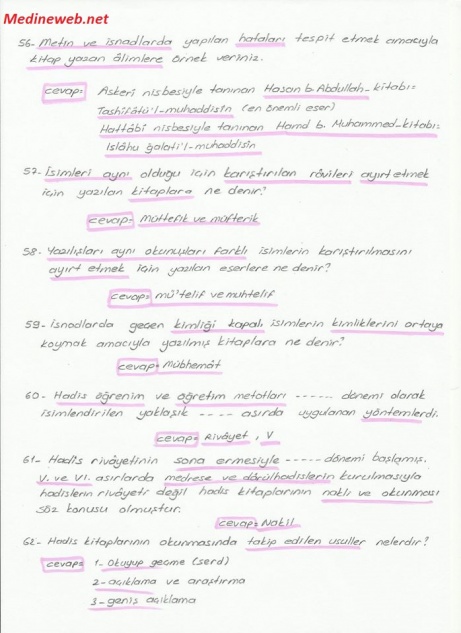 Medineweb.net
56- Metin ve isnadlarda yapılan hataları tespit etmek amacıyla
kitap yazan âlimlere örnek veriniz.
cevap= Askerî nisbesiyle tanınan Hasan b. Abdullah-kitabı=
Tashîfâtü'l-muhaddisîn (en önemli eser)
Hattâbî nisbesiyle tanınan Hamd b. Muhammed-kitabı=
Islâhu ğalati'l-muhaddisîn
57- İsimleri aynı olduğu için karıştırılan râvileri ayırt etmek
için yazılan kitaplara ne denir?
cevap= Müttefik ve müfterik
58- Yazılışları aynı okunuşları farklı isimlerin karıştırılmasını
ayırt etmek için yazılan eserlere ne denir?
cevap= mü'telif ve muhtelif
59- isnadlarda geçen kimliği kapalı isimlerin kimliklerini ortaya
koymak amacıyla yazılmış kitaplara ne denir?
cevap= Mübhemât
60- Hadis öğrenim ve öğretim metotları ------ dönemi olarak
isimlendirilen yaklaşık ---- asırda uygulanan yöntemlerdi.
cevap= Rivâyet , V
61- Hadîs rivâyetinin sona ermesiyle ----- dönemi başlamış.
V. ve VI. asırlarda medrese ve dârülhadislerin kurulmasıyla
hadislerin rivâyeti değil hadis kitaplarının nakli ve okunması
söz konusu olmuştur.
cevap= Nakil
62- Hadis kitaplarının okunmasında takip edilen usuller nelerdir?
cevap= 1- Okuyup geçme (serd)
2- açıklama ve araştırma
3- geniş açıklama